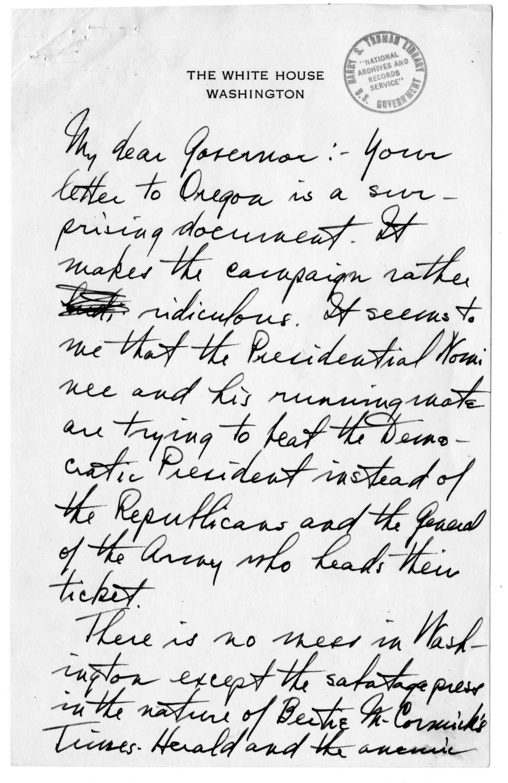 THE WHITE HOUSE
WASHINGTON
HARRY S. TRUMAN LIBRARY
"NATIONAL
ARCHIVES AND
RECORDS
SERVICE"
U.S. GOVERNMENT
My dear Governor:- Your
letter to Oregon is a sur-
prising document. It
makes the campaign rather
ridiculous. It seems to
me that the Presidential Nomi
nee and his running mate
are trying to beat the Demo-
cratic President instead of
the Republicans and the General
of the Army who heads their
ticket.
There is no mess in Wash-
ington except the sabatage press
in the nature of Bertie McCormick's
Times-Herald and the anemic